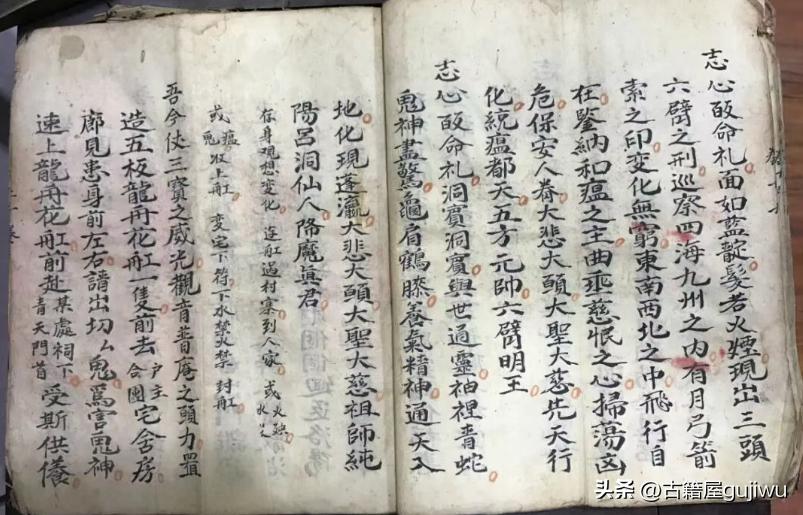 志心皈命礼面如蓝靛髮若火煙現出三頭
六臂之刑巡察四海九州之内有月弓箭
索之印变化無窮東南西北之中飛行自
在鑒納和瘟之主曲垂慈悯之心掃蕩凶
危保安人眷大悲大願大聖大慈先天行
化統瘟都天五方元帥六臂明王
志心皈命礼洞賓洞賓與世通靈袖裡青蛇
鬼神盡驚龜肩鶴膝養氣精神通天入
地化現蓬瀛大悲大願大聖大慈祖師純
陽呂洞仙人降魔真君
存身观想变化 連舡過村寨到人家 或火
或瘟鬼收上舡 变宅下符下水禁火禁 封舡
吾今仗三寶之威光觀音普庵之願力置
造五板龍舟花舡一隻前去户主合團宅舍房
廊見患身前左右請出切厶鬼為害鬼神
速上龍舟花舡前赴某處祠下青天門首受斯供養
头条 @古籍屋gujiwu